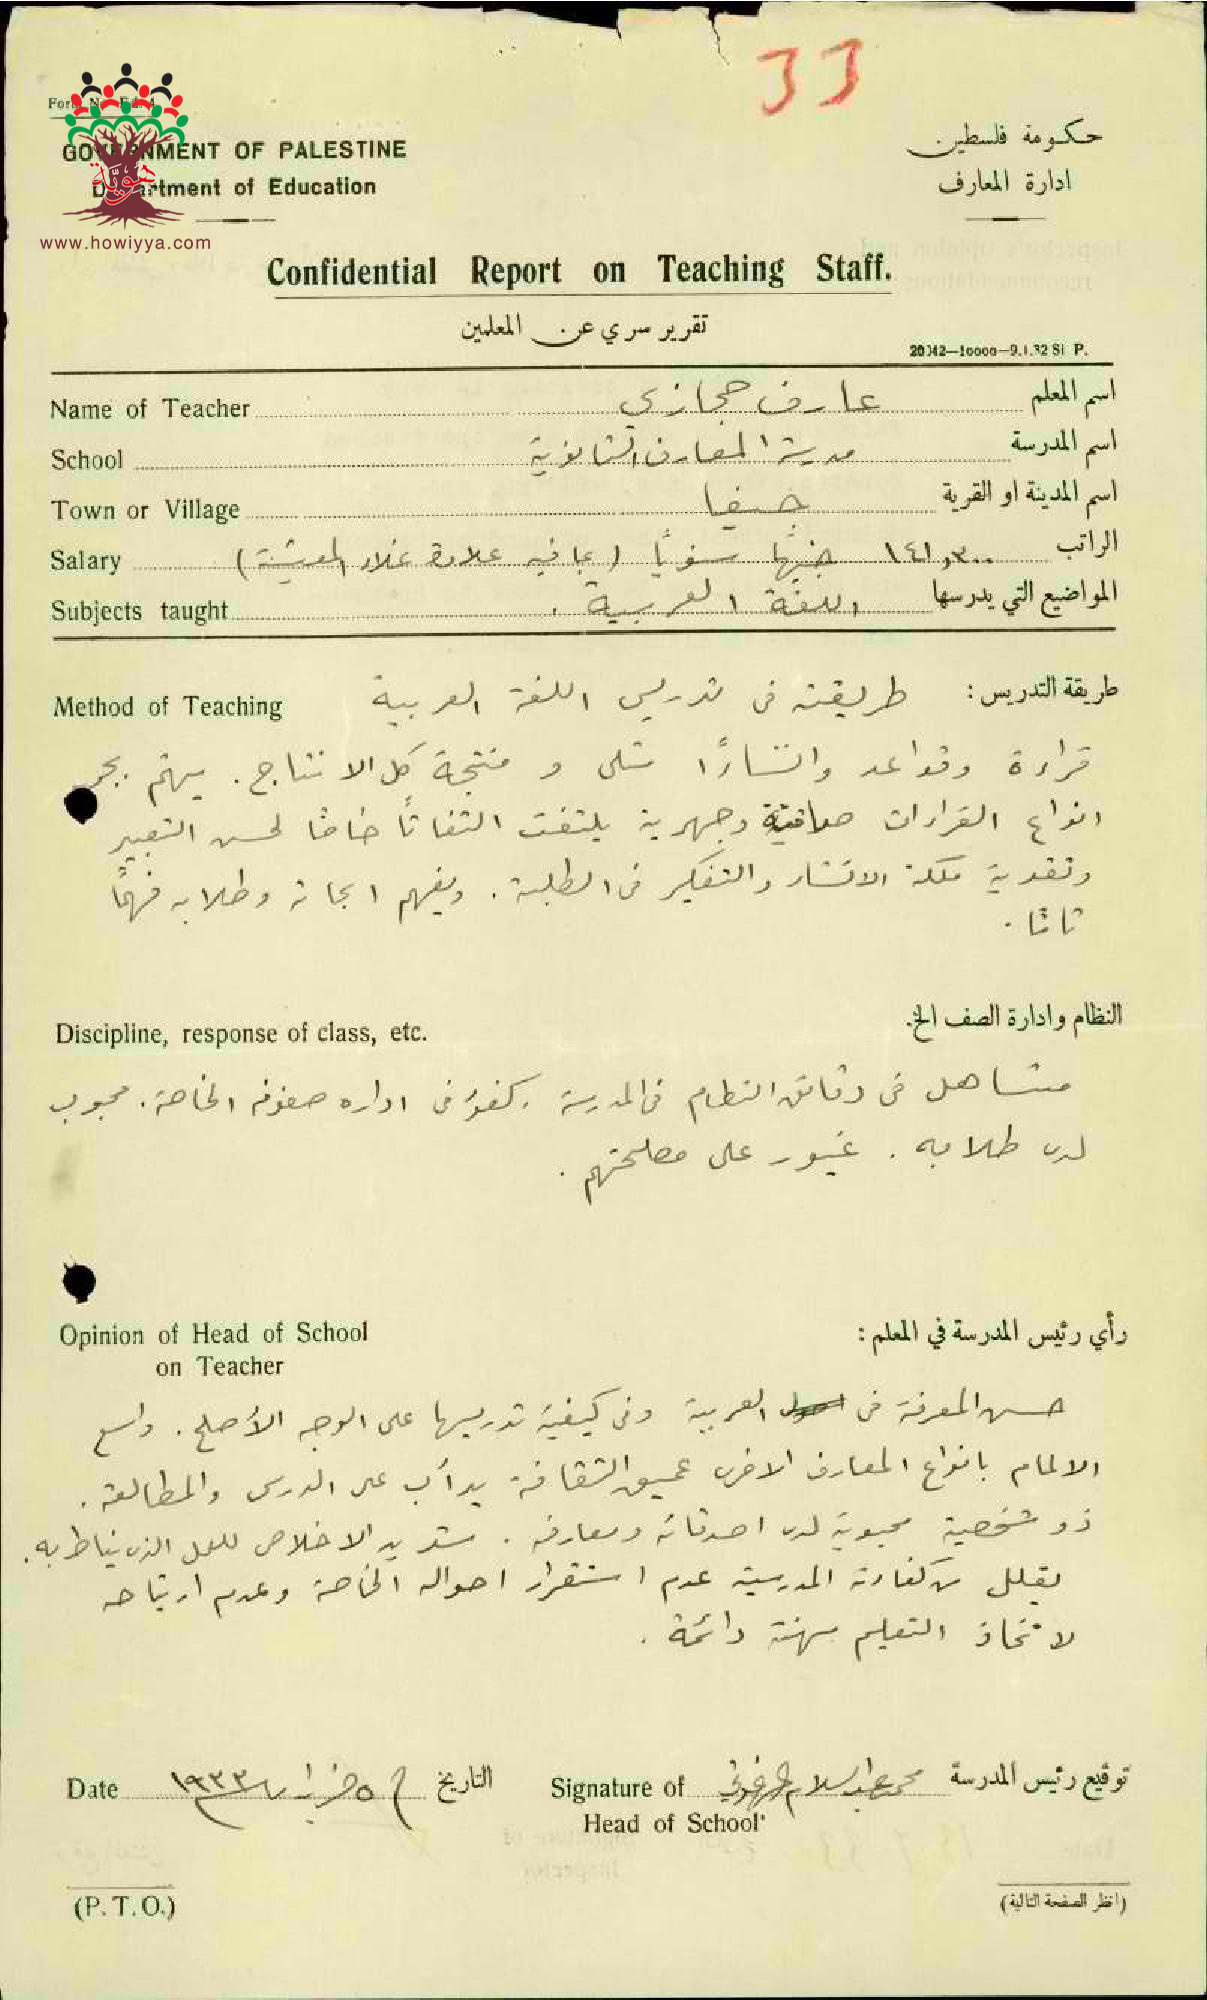 33
Form No. Ed. 4
GOVERNMENT OF PALESTINE
Department of Education
حكومة فلسطين
ادارة المعارف
هوية
www.howiyya.com
Confidential Report on Teaching Staff.
تقرير سري عن المعلمين
20342—10000—9.1.32 St P.
Name of Teacher عارف حجازي اسم المعلم
School مدرسة المعارف الثانوية اسم المدرسة
Town or Village اسم المدينة او القرية
Salary ١٤١,٣٠٠ جنيهًا سنويًا (بما فيه علاوة غلاء المعيشة) الراتب
Subjects taught اللغة العربية . المواضيع التي يدرسها
Method of Teaching طريقة التدريس : طريقته في تدريس اللغة العربية
قراءة وقواعد وانشاءً مثلى و منتجة كل الانتاج. يهتم
انواع القراءات صامتة وجهرية يلتفت التفاتًا خاصًا لحسن التعبير
وتقوية ملكة الانشاء والتفكير في الطلبة . ويفهم ابحاثه وطلابه فهمًا
تامًا .
Discipline, response of class, etc. النظام وادارة الصف الخ.
متساهل في دقائق النظام في المدرسة . كفؤ في ادارة صفوفه الخاصة . محبوب
لدى طلابه . غيور على مصلحتهم .
Opinion of Head of School رأي رئيس المدرسة في المعلم :
on Teacher
حسن المعرفة في العربية وفي كيفية تدريسها على الوجه الأصلح . واسع
الالمام بانواع المعارف الاخرى عميق الثقافة يدأب على الدرس والمطالعة .
ذو شخصية محبوبة لدى اصدقائه ومعارفه . شديد الاخلاص للعمل الذي يناط به .
يقلل من كفاءته المدرسية عدم استقرار احواله الخاصة وعدم ارتياحه
لاتخاذ التعليم مهنة دائمة .
Date ٥ حزيران ١٩٣٣ التاريخ Signature of محمد عبد السلام توقيع رئيس المدرسة
Head of School
(P.T.O.) (انظر الصفحة التالية)